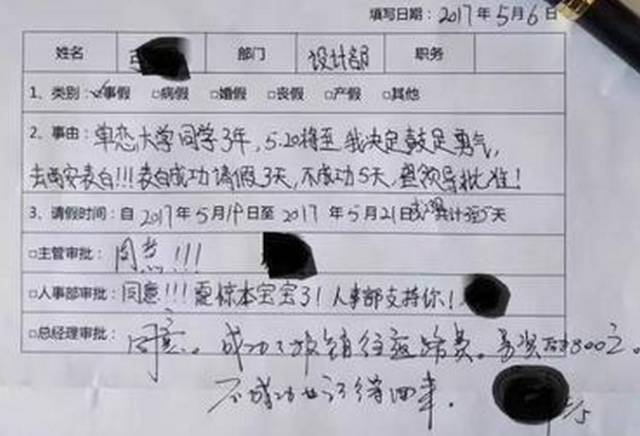 填写日期：2017年5月6日
姓名 部门 设计部 职务
1、类别：☑事假 □病假 □婚假 □丧假 □产假 □其他
2、事由：单恋大学同学3年，5.20将至我决定鼓足勇气，
去西安表白!!!表白成功请假3天，不成功5天，望领导批准！
3、请假时间：自2017年5月19日至2017年5月21日 共计3至5天
□主管审批：同意!!!
□人事部审批：同意!!! 惊本宝宝了！人事部支持你！
□总经理审批：同意。成功了报销往返路费。另奖 800元
不成功也记得回来。